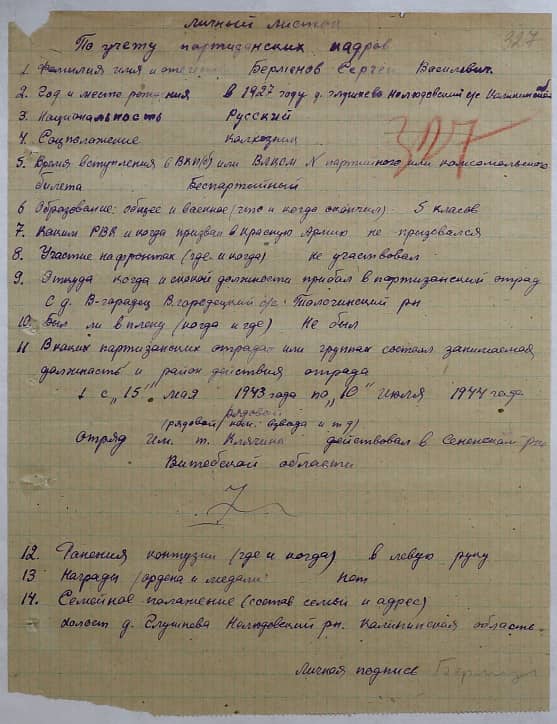 Личный листок
По учету партизанских кадров 327
1. Фамилия имя и отчество Берменов Сергей Василевич.
2. Год и место рождения в 1927 году д. Нелюдовский с/с Калининской
3. Национальность Русский
4. Соцположение Колхозник
327
5. Время вступления в ВКП(б) или ВЛКСМ N партийного или комсомольского
билета Беспартийный
6 Образование: общее и военное (что и когда окончил) 5 класов
7. Каким РВК и когда призван в Красную Армию не прызовался
8. Участие на фронтах (где и когда) не участвовал
9. Откуда когда и скакой должности прибыл в партизанский отряд
С д. В-гарадец В.городецкий с/с. Талочинский рн
10. Был ли в плену (когда и где) Не был
11 В каких партизанских отрядах или группах состоял занимаемая
должность и район действия отряда
1 с „15" мая 1943 года по „10" Июля 1944 года
рядовой
(рядовой, ком: взвода и т д)
Отряд Им. т. действовал в Сененском рне
Витебской области
12. Ранения контузии (где и когда) в левую руку
13 Награды /ордена и медали: Нет
14. Семейное палажение (состав семьи и адрес)
холост д. Глушнева Нелюдовский рн. Калининская области.
Личная подпись